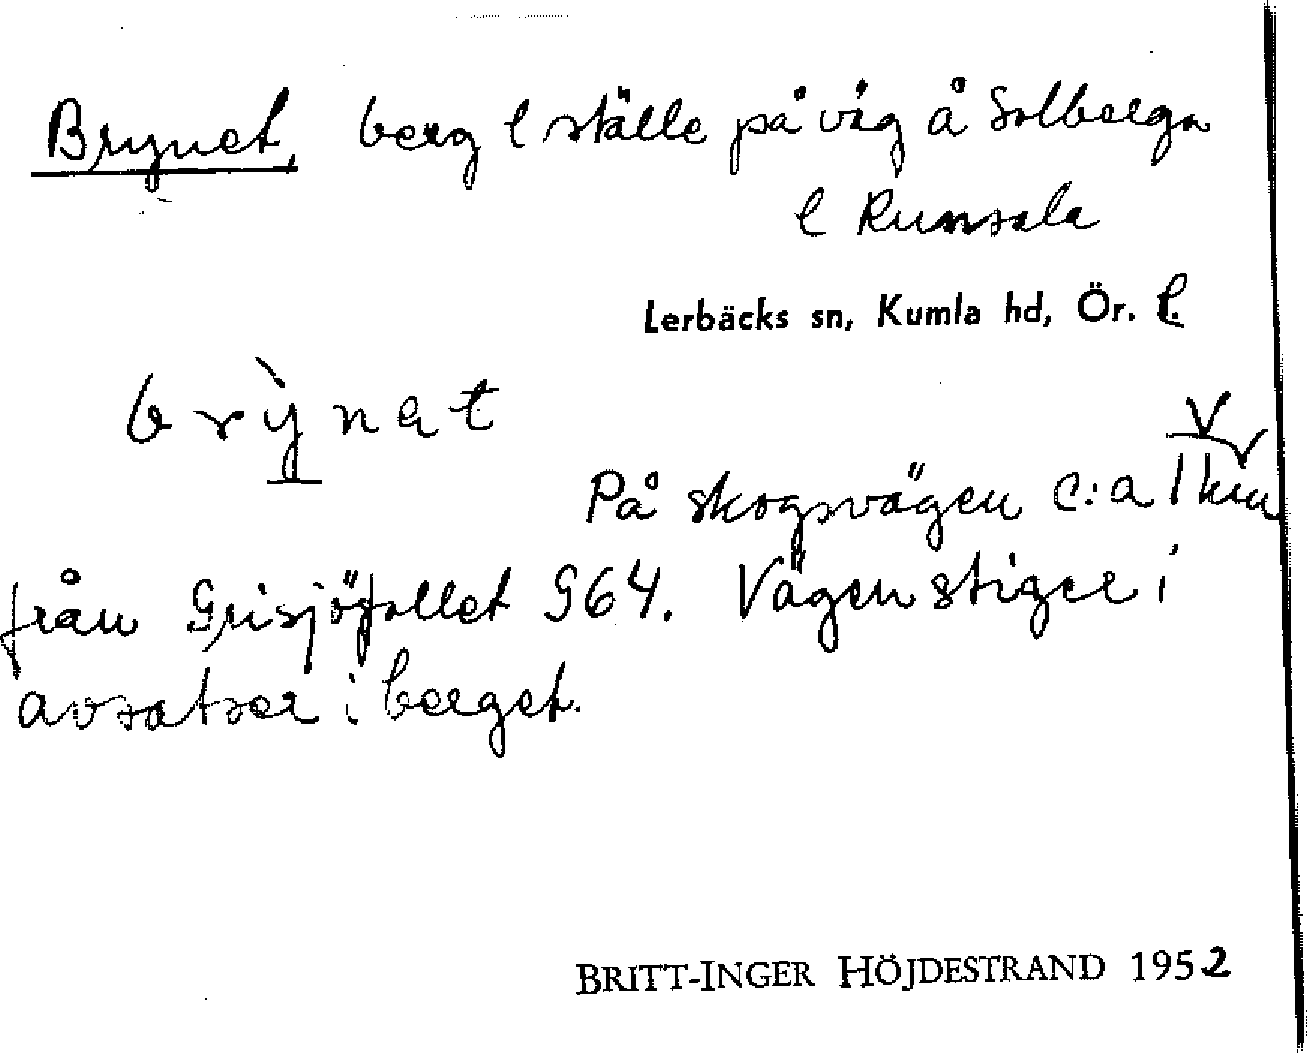 Brynet, berg l ställe på väg å Solberga
l Runsala
Lerbäcks sn, Kumla hd, Ör. l.
brỳnet
På skogsvägen c:a 1 km V
från Grisjöfallet 964. Vägen stiger i
avsatser i berget.
BRITT-INGER HÖJDESTRAND 1952